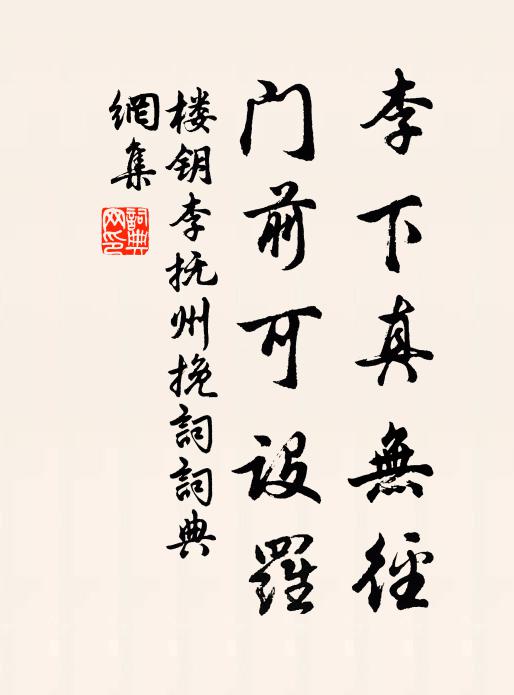 李下真無徑
門前可設羅
楼钥李抚州挽詞詞典
網集
詞典
网印